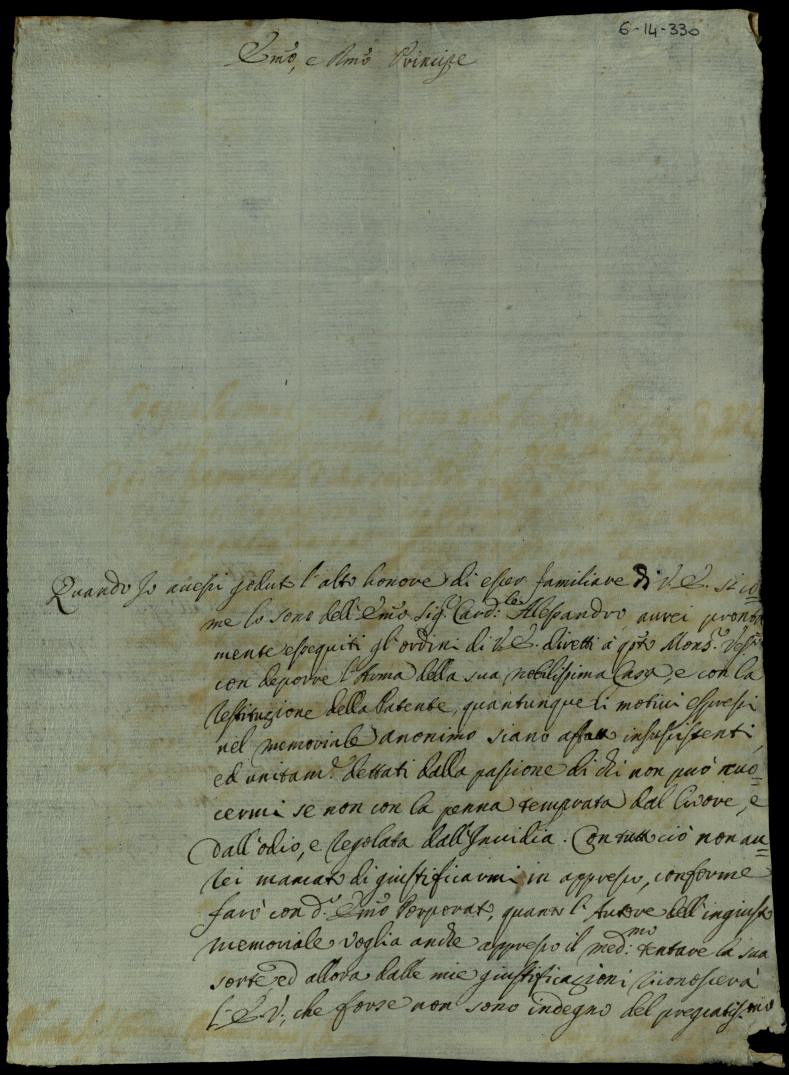 6-14-330
Emo, e Rmo Principe
Quando Io avessi goduto l'alto honore di esser familiare di V.E. si co=
me lo sono dell'Emo Sig.r Card:le Alessandro aurei pronta
mente eseguiti gl'ordini di V.E. diretti à qsto Mons.r
con deporre l'Arma della sua nobilissima Casa, e con la
restituzione della Patente, quantunque li motivi espressi
nel memoriale anonimo siano affatto insussistenti,
ed unitam.e dettati dalla passione di chi non può nuo=
cermi se non con la penna temprata dal livore, e
dall'odio, e regolata dall'Invidia. Con tutto ciò non au=
rei mancato di giustificarmi in appresso, conforme
farò con d.o Emo Porporato, quanto l'Autore dell'ingiusto
memoriale voglia anche appresso il med:mo tentare la sua
sorte, ed allora dalle mie giustificazioni riconoscerà
l'E.V., che forse non sono indegno del pregiatis.mo